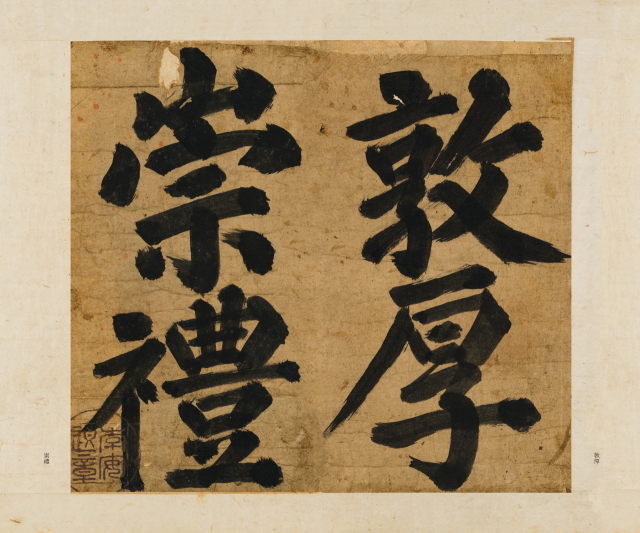 敦厚
崇禮
敦厚
崇禮